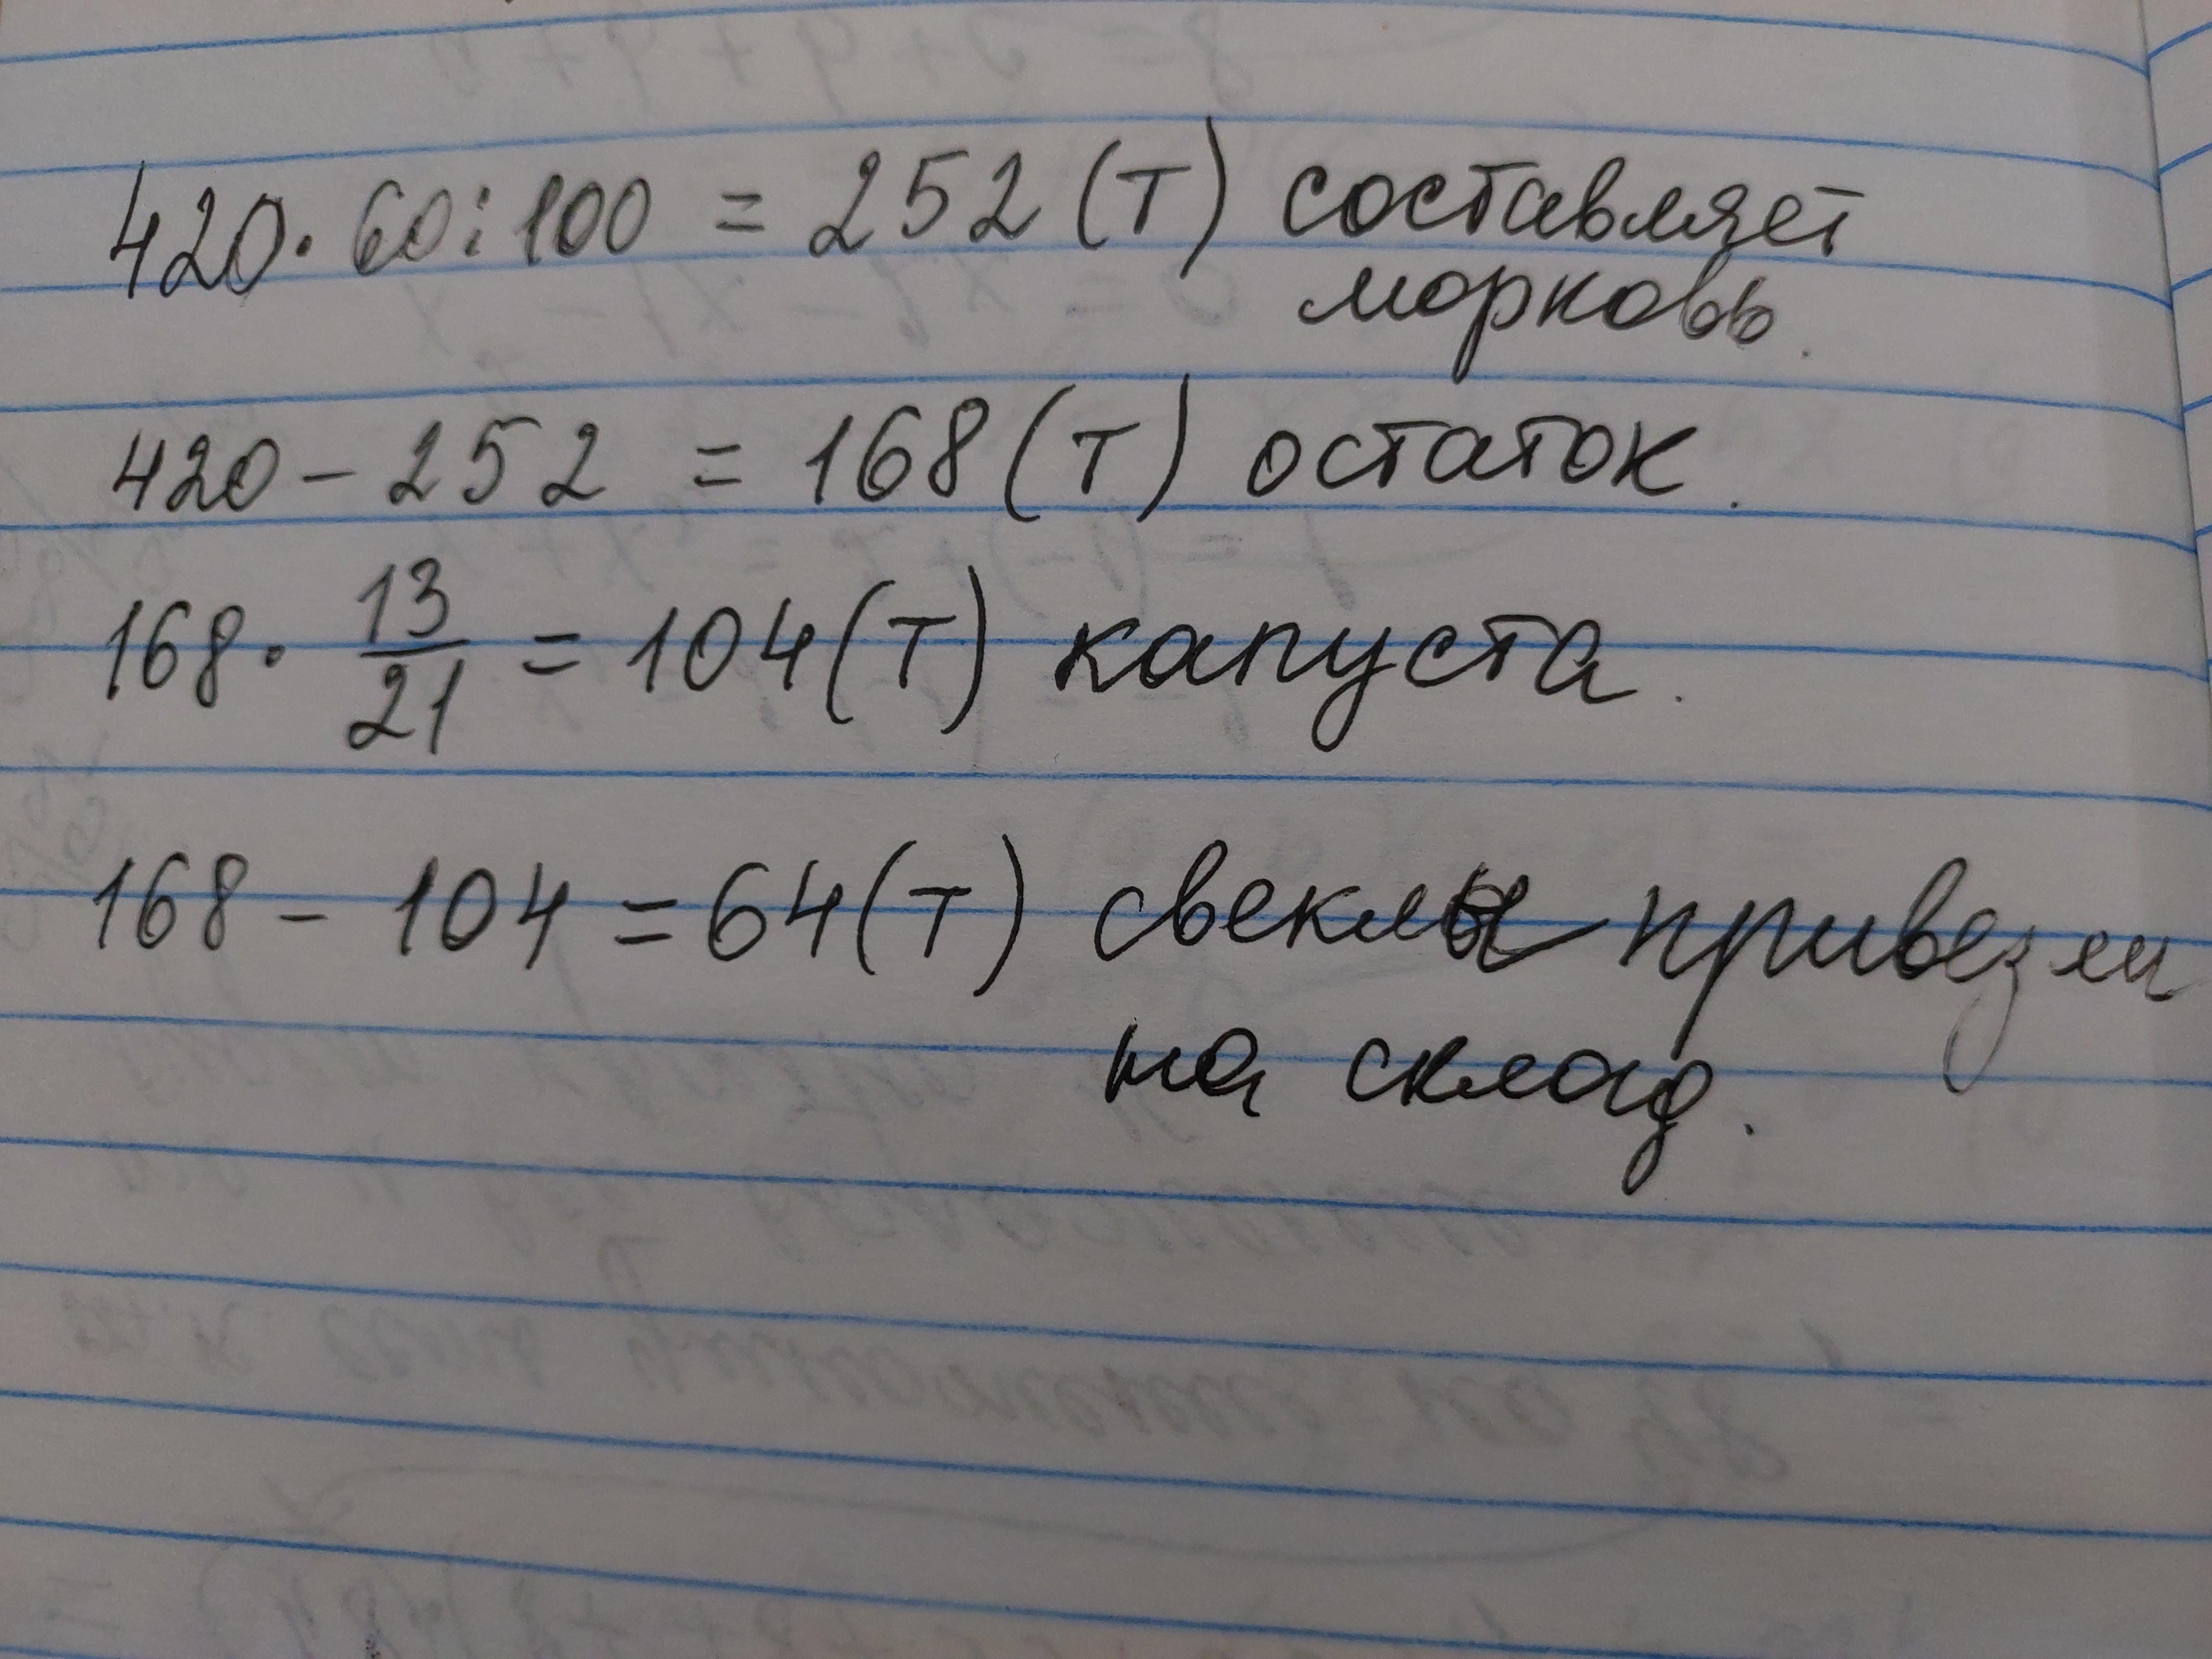 420 · 60 : 100 = 252 (т) составляет
морковь.
420 - 252 = 168 (т) остаток.
168 · 13/21 = 104 (т) капуста.
168 - 104 = 64 (т) свеклы привезли
на склад.